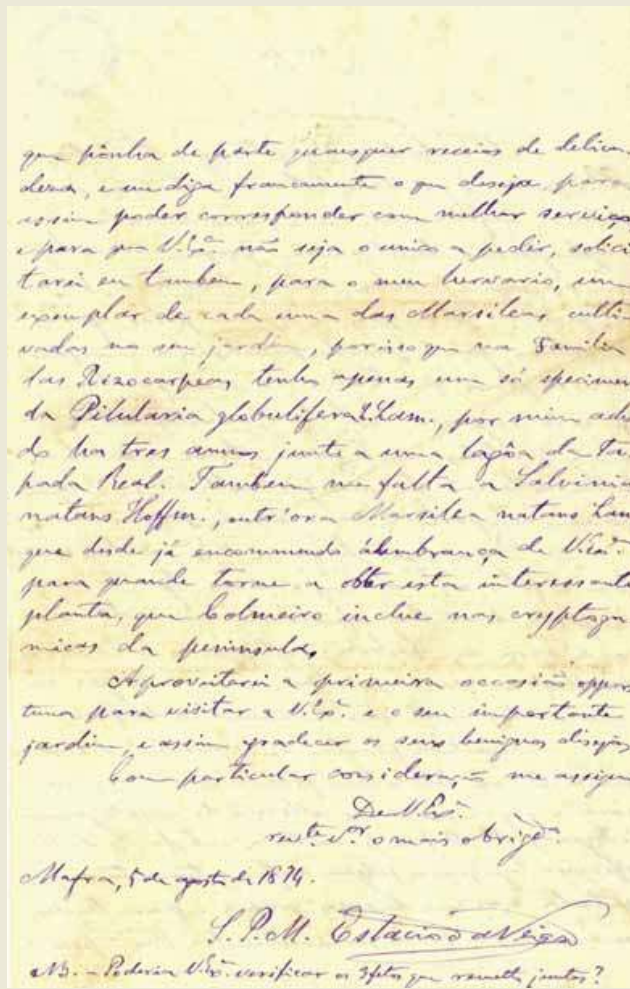 que pônha de parte quaesquer receios de delica-
deza, e me diga francamente o que deseja, para
assim poder corresponder com melhor serviço
e para que V. Ex.ª não seja o unico a pedir, solici
tarei eu tambem, para o meu hervario, um
exemplar de cada uma das Marsileas culti
vadas no seu jardim, por isso que na Familia
das Rizocarpeas tenho apenas um só specimen
da Pilularia globulifera L. Lam., por mim acha
do ha tres annos junto a uma lagôa da Ta
pada Real. Tambem me falta a Salvinia
natans Hoffm., outr'ora Marsilea natans Lam
que desde já encommendo á lembrança de V. Ex.ª
para quando torne a obter esta interessante
planta, que Colmeiro inclue nas cryptoga
micas da peninsula.
Aproveitarei a primeira occasião oppor
tuna para visitar a V. Ex.ª e o seu importante
jardim, e assim gradecer os seus benignos disejos
Com particular consideração me assigno
De V. Ex.ª
o mais obrigd.º
Mafra, 5 de agosto de 1874.
S. P. M. Estacio da Veiga
NB. - Poderia V. Ex.ª verificar os 3 fetos que remetto juntos?